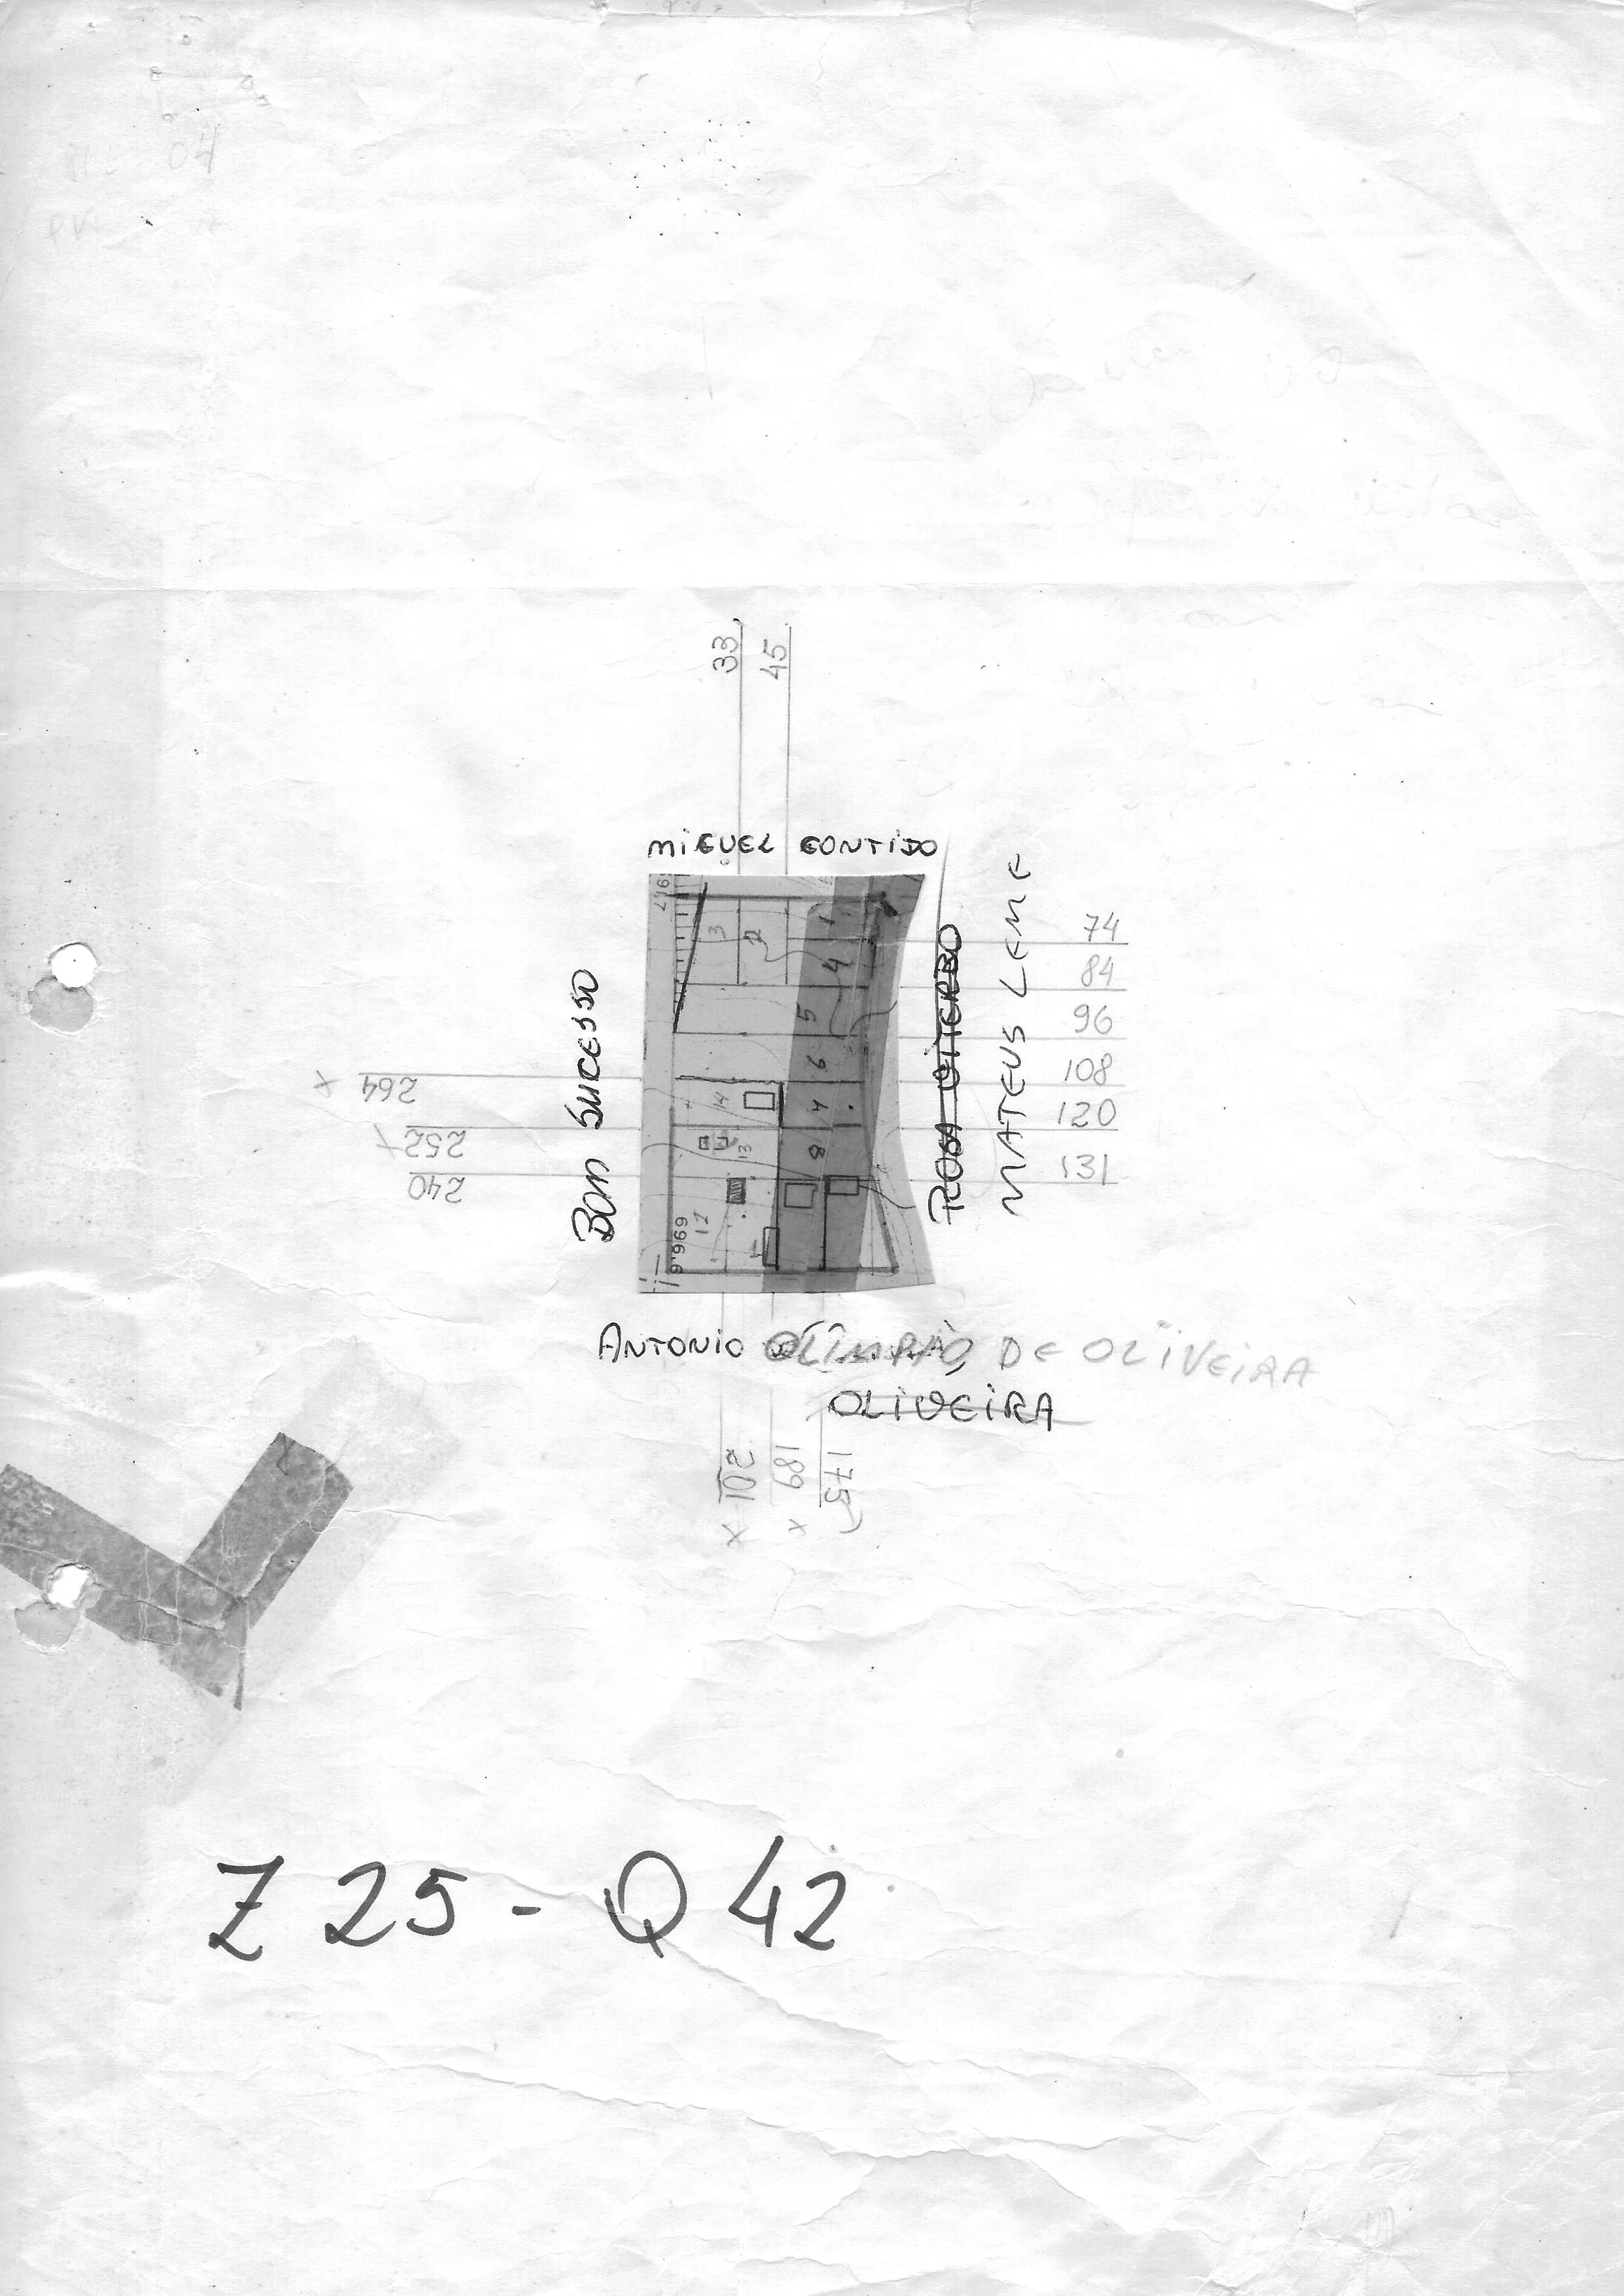 04
33
45
MIGUEL GONTIJO
BOM SUCESSO
ROSA VITERBO
MATEUS LEME
74
84
96
108
120
131
264 x
252 x
240
3
2
1
4
5
6
14
8
13
12
ANTONIO OLÍMPIO DE OLIVEIRA
OLIVEIRA
201 x
189 x
175
Z 25 - Q 42